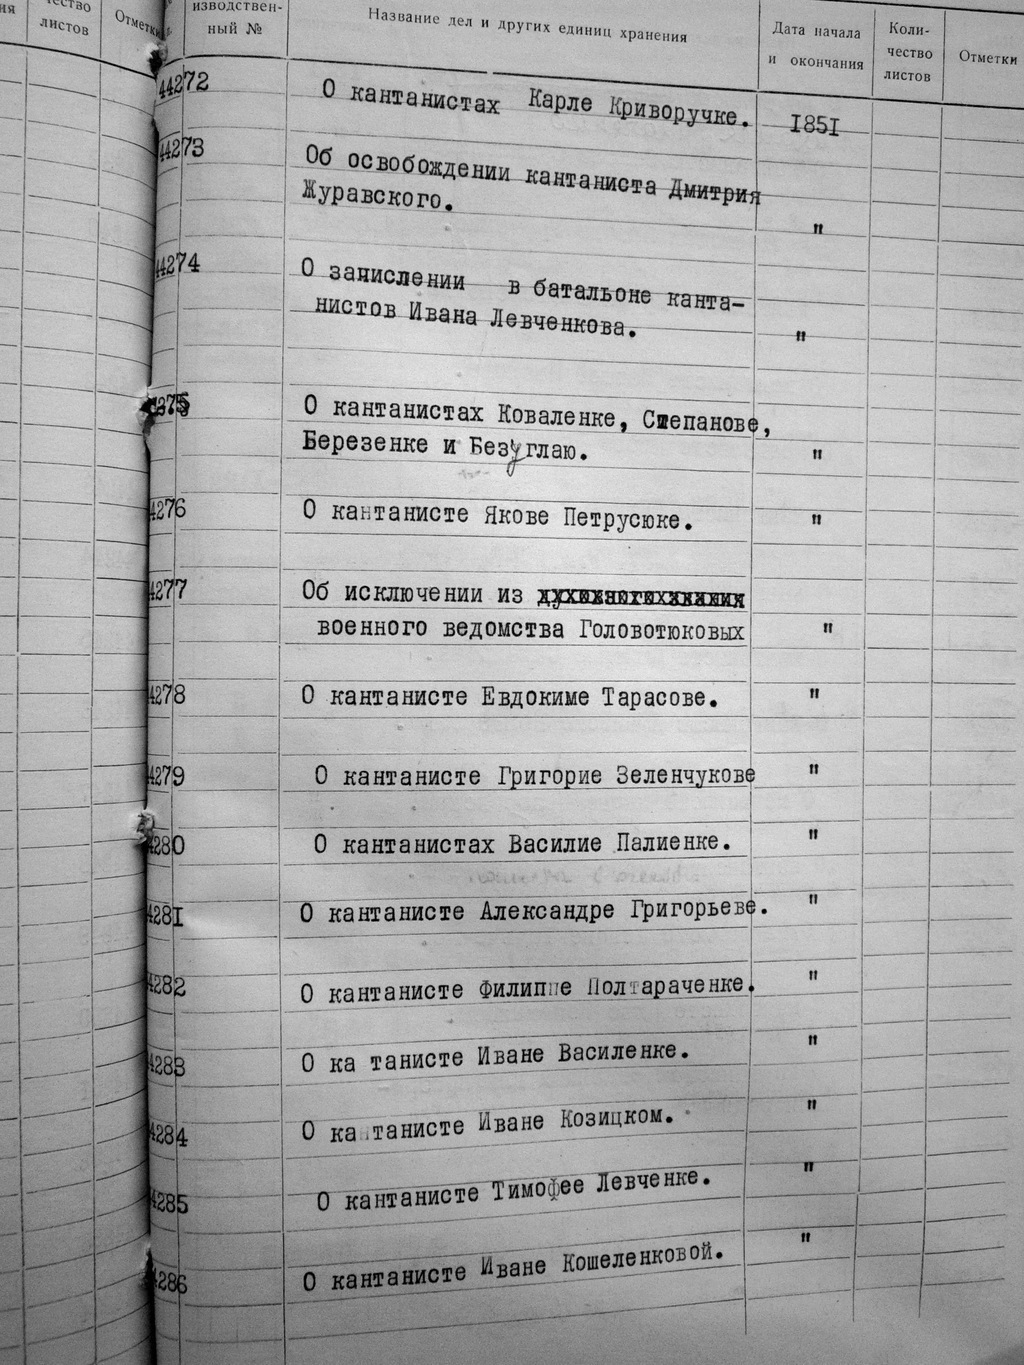 ия
чество
листов
Отметки
изводствен-
ный №
Название дел и других единиц хранения
Дата начала
и окончания
Коли-
чество
листов
Отметки
44272 О кантанистах Карле Криворучке. 1851
44273 Об освобождении кантаниста Дмитрия
Журавского. "
44274 О зачислении в батальоне канта-
нистов Ивана Левченкова. "
4275 О кантанистах Коваленке, Степанове,
Березенке и Безуглаю. "
4276 О кантанисте Якове Петрусюке. "
4277 Об исключении из
военного ведомства Головотюковых "
4278 О кантанисте Евдокиме Тарасове. "
4279 О кантанисте Григорие Зеленчукове "
4280 О кантанистах Василие Палиенке. "
4281 О кантанисте Александре Григорьеве. "
4282 О кантанисте Филиппе Полтараченке. "
4283 О ка танисте Иване Василенке. "
4284 О кантанисте Иване Козицком. "
4285 О кантанисте Тимофее Левченке. "
4286 О кантанисте Иване Кошеленковой. "